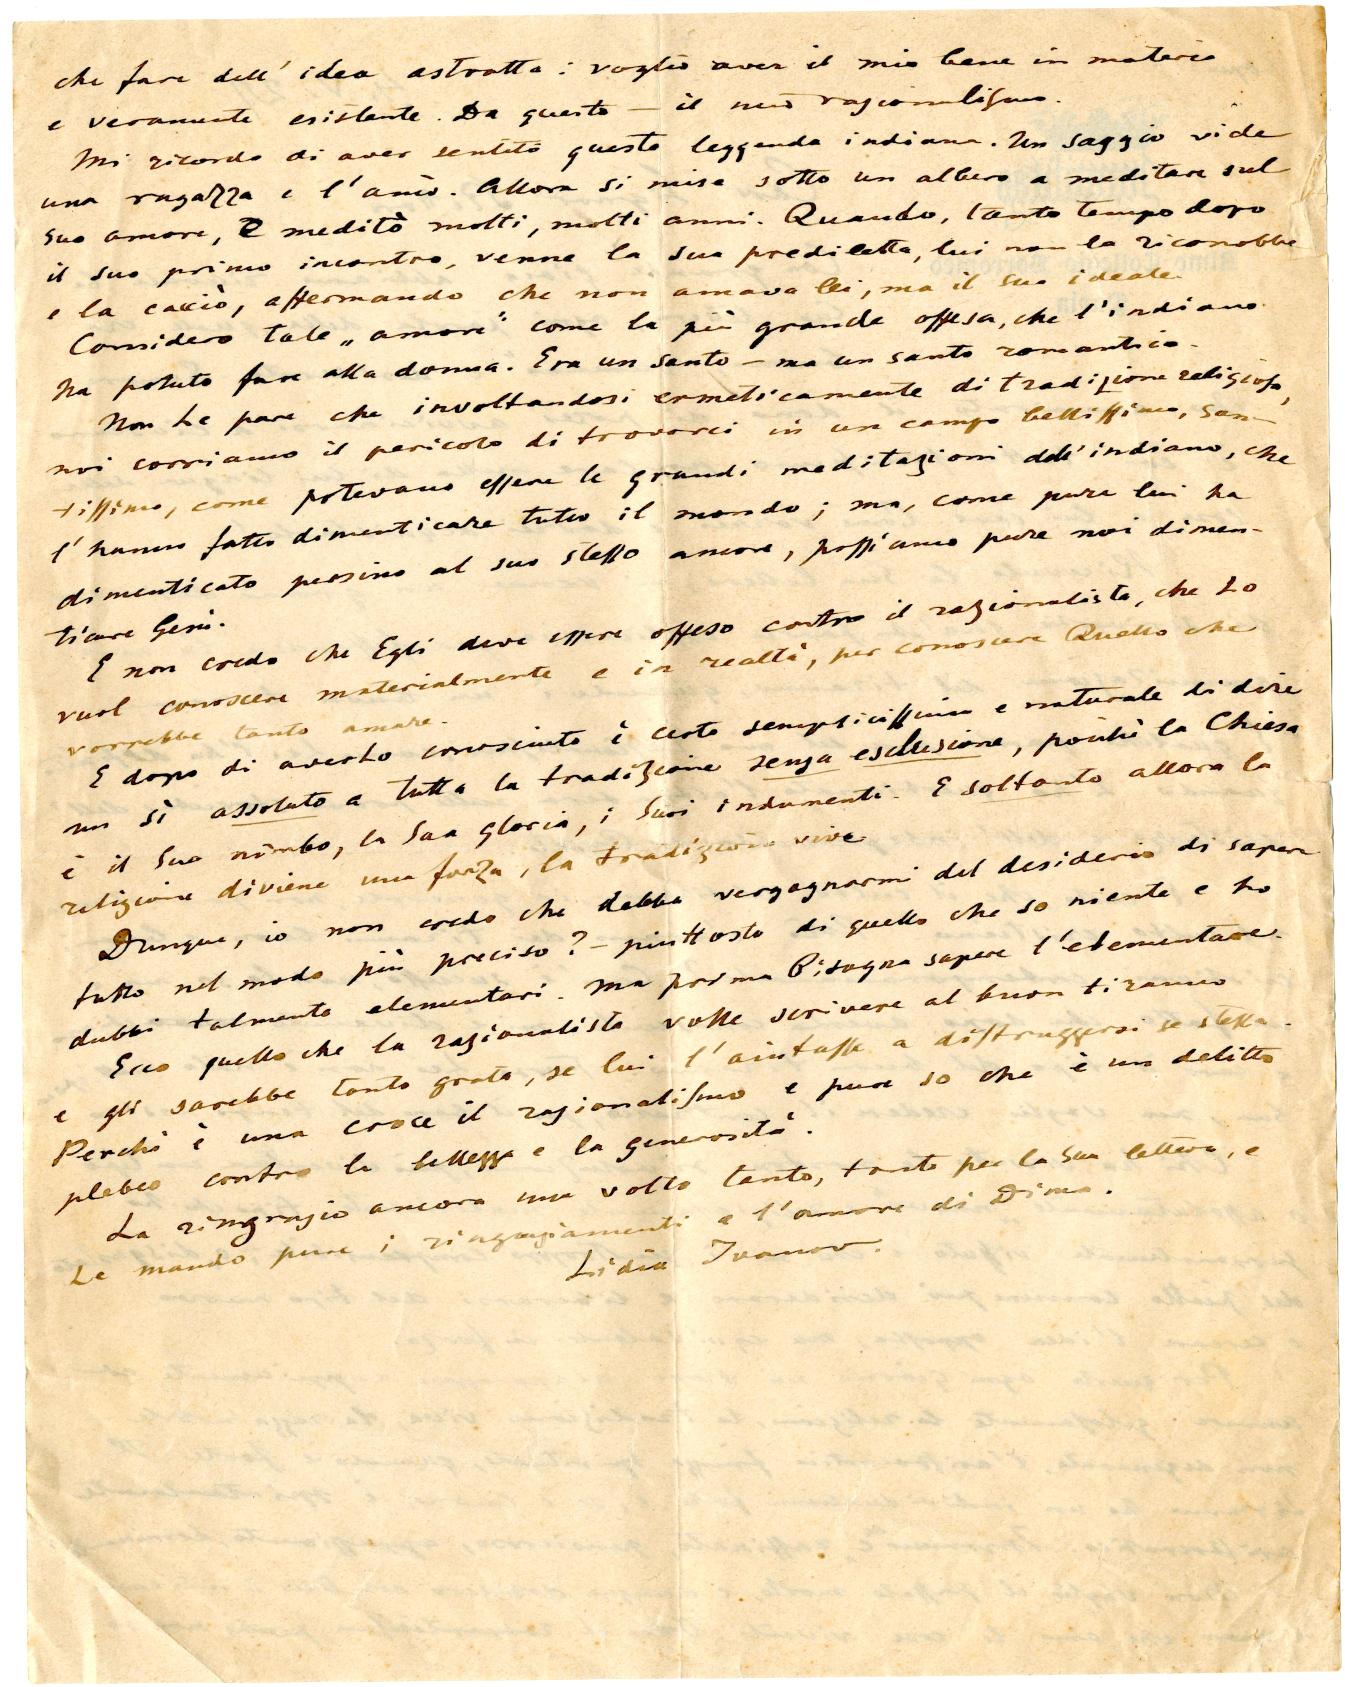 che fare dell'idea astratta: voglio aver il mio bene in materia
e veramente esistente. Da questo — il mio razionalismo.
Mi ricordo di aver sentito questa leggenda indiana. Un saggio vide
una ragazza e l'amò. Allora si mise sotto un albero a meditare sul
suo amore, e meditò molti, molti anni. Quando, tanto tempo dopo
il suo primo incontro, venne la sua prediletta, lui non la riconobbe
e la cacciò, affermando che non amava lei, ma il suo ideale.
Considero tale „amore" come la più grande offesa, che l'indiano
ha potuto fare alla donna. Era un santo — ma un santo romantico.
Non Le pare che involtandosi ermeticamente di tradizione religiosa,
noi corriamo il pericolo di trovarci in un campo bellissimo, san-
tissimo, come potevano essere le grandi meditazioni dell'indiano, che
l'hanno fatto dimenticare tutto il mondo; ma, come pure lui ha
dimenticato persino al suo stesso amore, possiamo pure noi dimen-
ticare Gesù.
E non credo che Egli deve essere offeso contro il razionalista, che Lo
vuol conoscere materialmente e in realtà, per conoscere Quello che
vorrebbe tanto amare.
E dopo di averlo conosciuto è certo semplicissimo e naturale di dire
un sì assoluto a tutta la tradizione senza esclusione, poichè la Chiesa
è il Suo nimbo, la Sua gloria, i Suoi indumenti. E soltanto allora la
religione diviene una forza, la tradizione vive
Dunque, io non credo che debba vergognarmi del desiderio di sapere
tutto nel modo più preciso? — piuttosto di quello che so niente e ho
dubbi talmente elementari. Ma prima bisogna sapere l'elementare.
Ecco quello che la razionalista volle scrivere al buon tiranno
e gli sarebbe tanto grata, se lui l'aiutasse a distruggersi se stessa.
Perchè è una croce il razionalismo e pure so che è un delitto
plebeo contro la bellezza e la generosità.
La ringrazio ancora una volta tanto, tanto per la Sua lettera, e
Le mando pure i ringraziamenti e l'amore di Dima.
Lidia Ivanov.